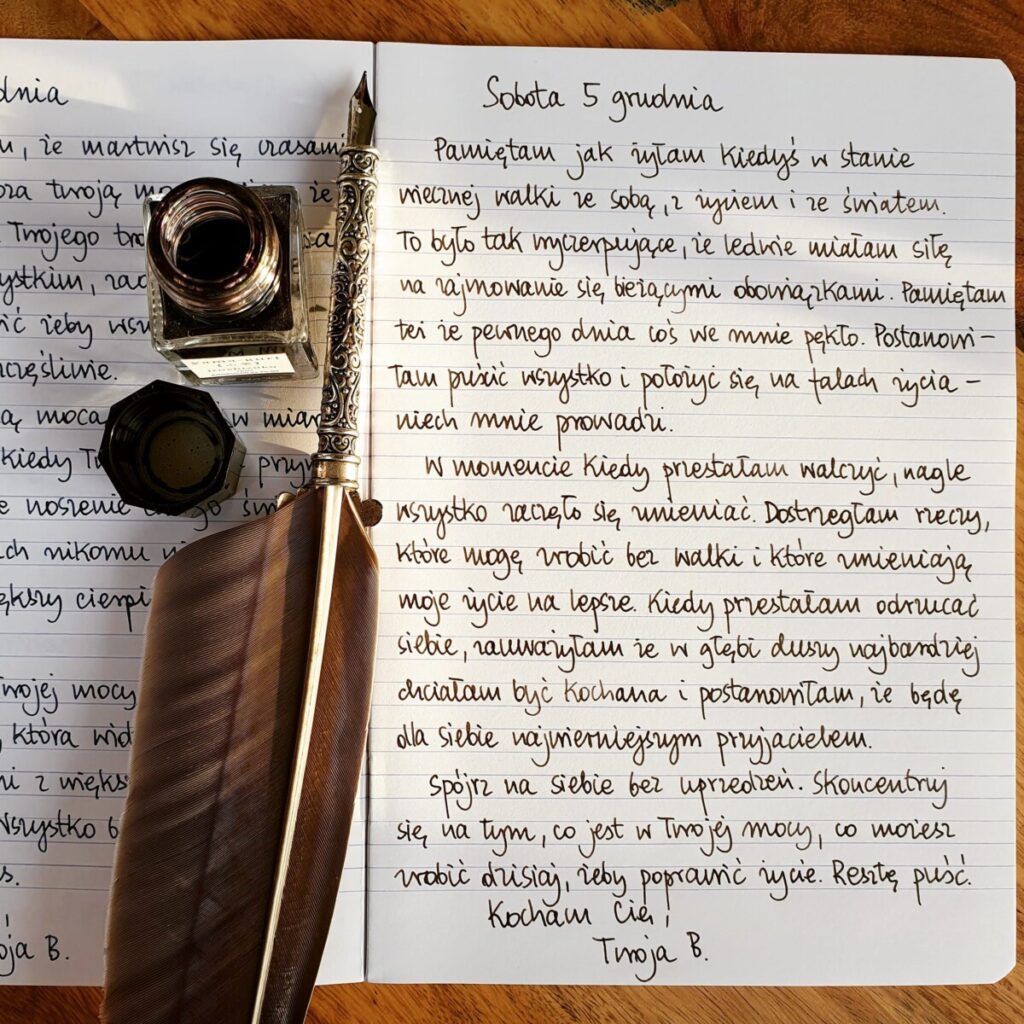 dnia
że martwisz się czasami
twoją że
Twojego
ystkim,
żeby
częśliwie.
w
kiedy
noszenie
nikomu
cierpi
Twojej mocy
która
z więks
Wszystko
s.
oja B.
Sobota 5 grudnia
Pamiętam jak żyłam kiedyś w stanie
wiecznej walki ze sobą, z życiem i ze światem.
To było tak wyczerpujące, że ledwie miałam siłę
na zajmowanie się bieżącymi obowiązkami. Pamiętam
też że pewnego dnia coś we mnie pękło. Postanowi-
łam puścić wszystko i położyć się na falach życia –
niech mnie prowadzi.
W momencie kiedy przestałam walczyć, nagle
wszystko zaczęło się zmieniać. Dostrzegłam rzeczy,
które mogę zrobić bez walki i które zmieniają
moje życie na lepsze. Kiedy przestałam odrzucać
siebie, zauważyłam że w głębi duszy najbardziej
chciałam być kochana i postanowiłam, że będę
dla siebie najwierniejszym przyjacielem.
Spójrz na siebie bez uprzedzeń. Skoncentruj
się na tym, co jest w Twojej mocy, co możesz
zrobić dzisiaj, żeby poprawić życie. Resztę puść.
Kocham Cię!
Twoja B.